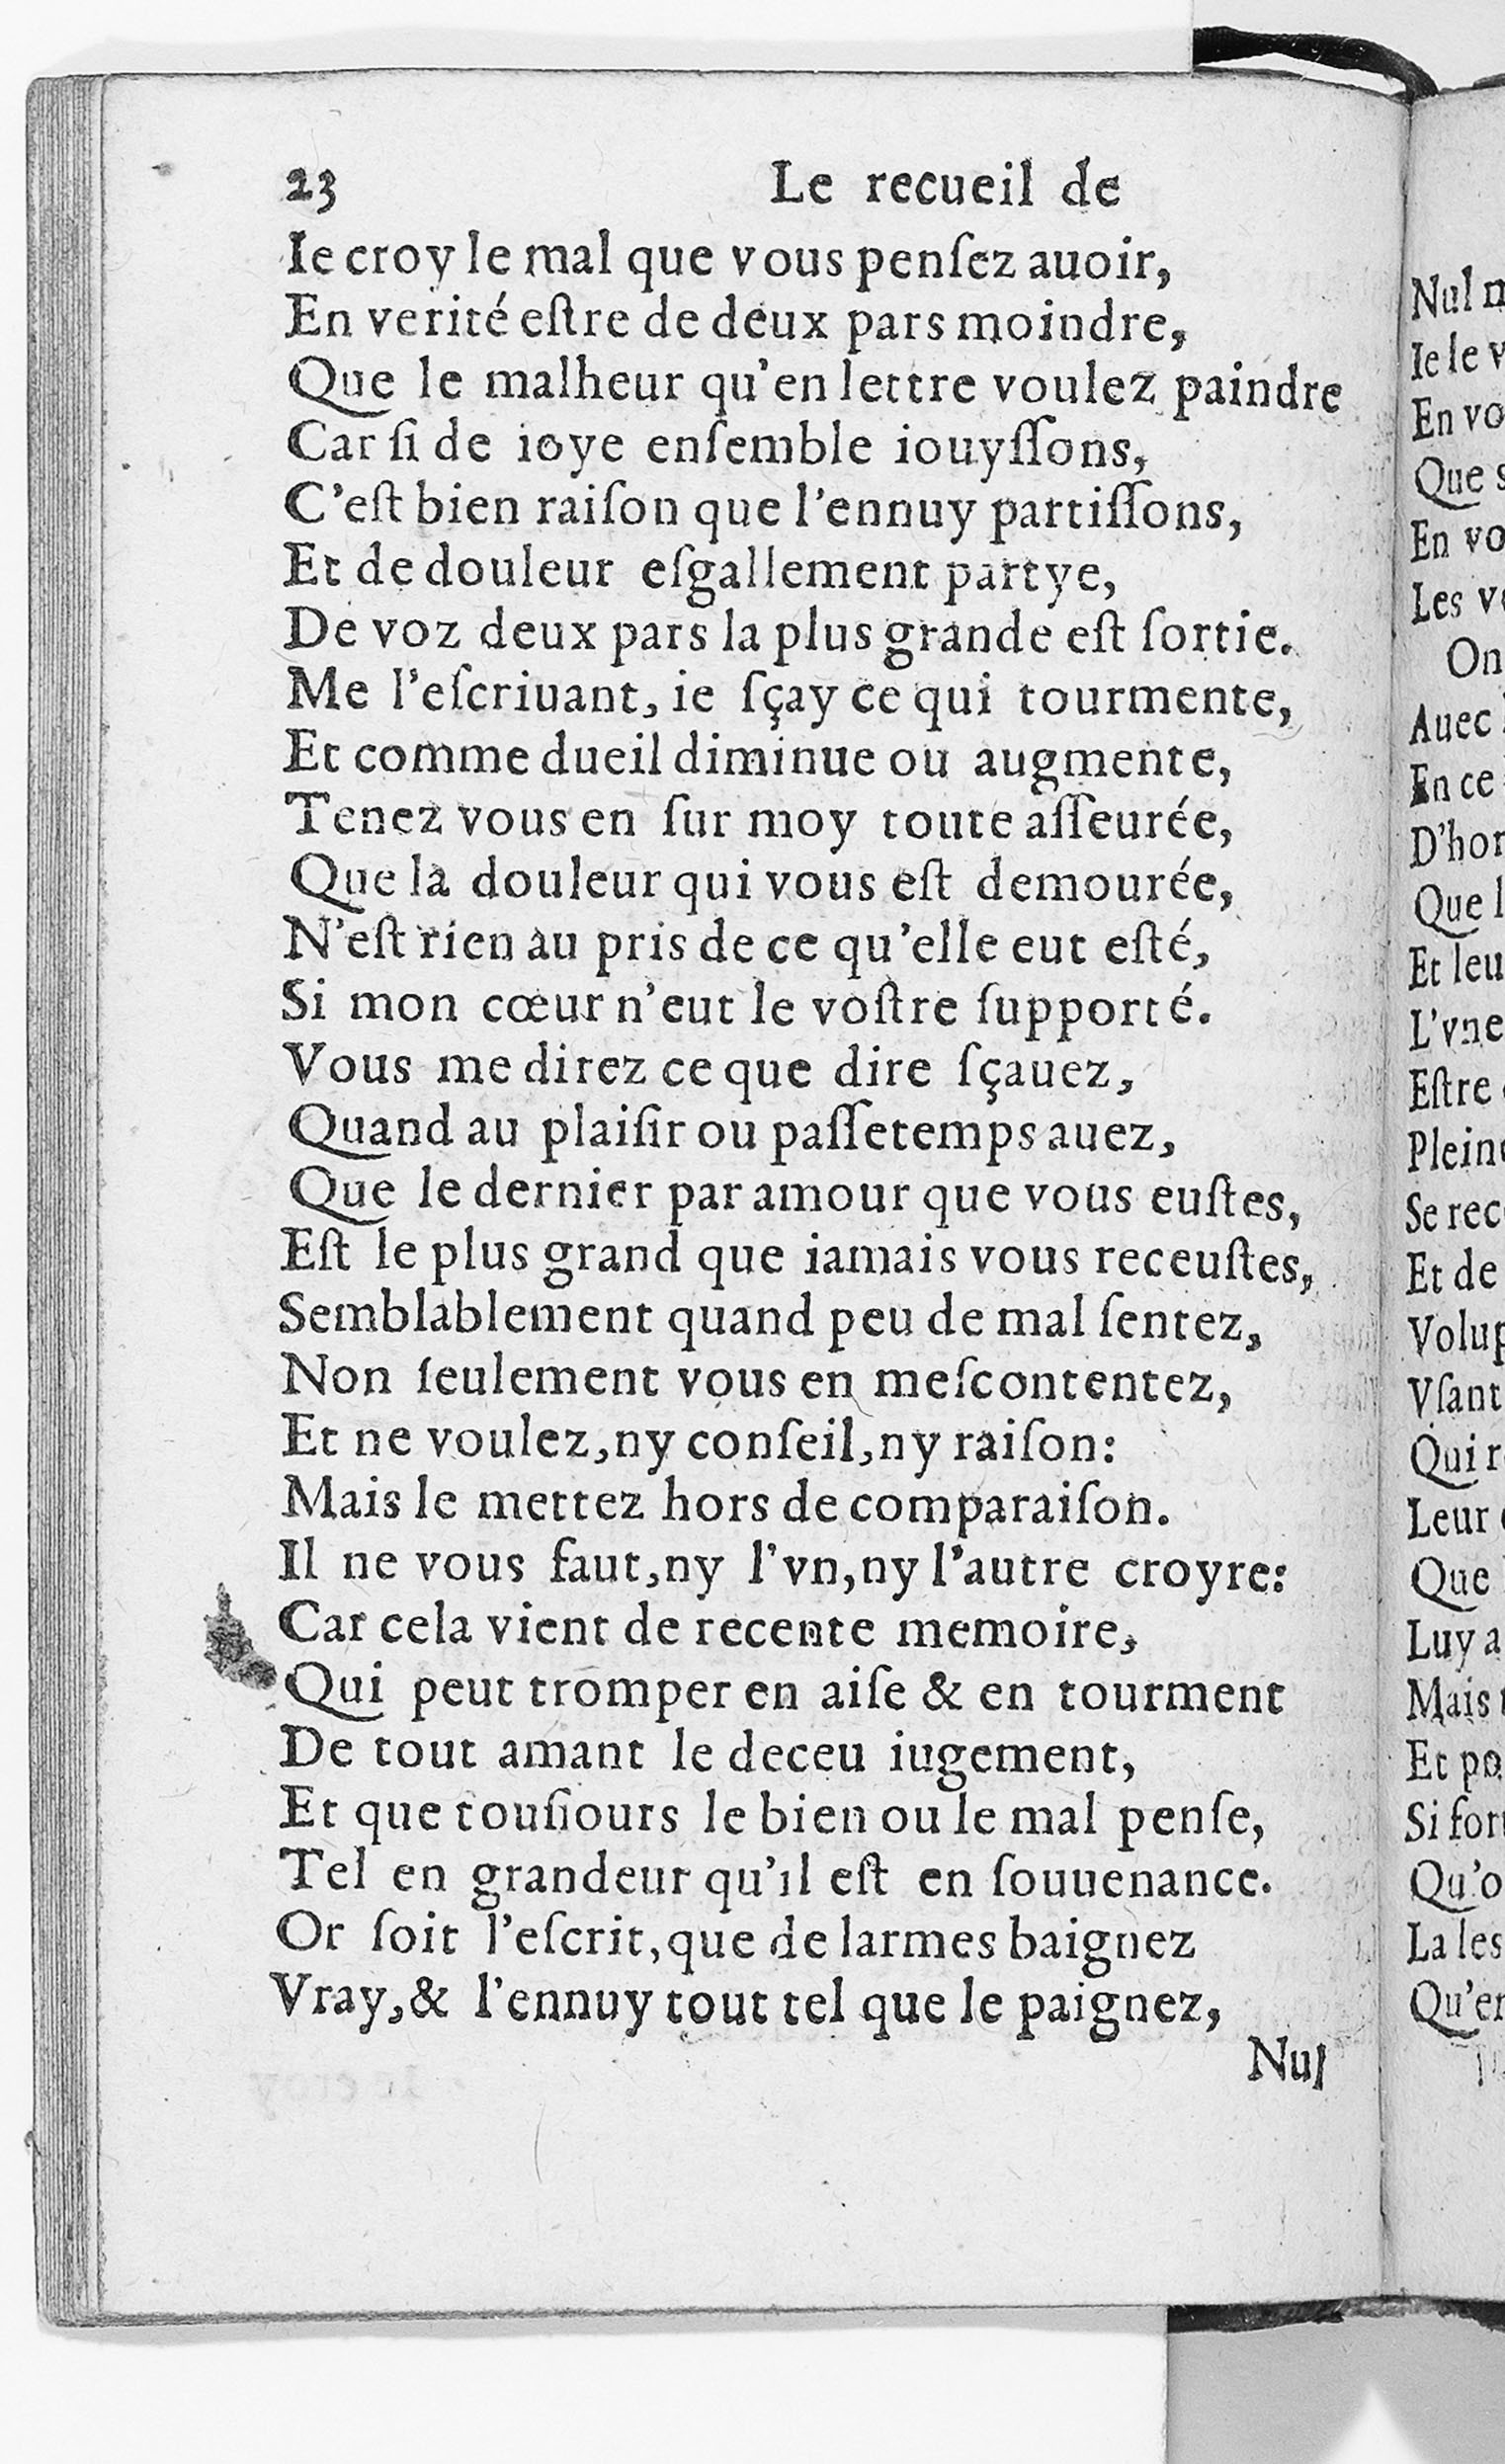 23 Le recueil de
Ie croy le mal que vous penſez auoir,
En verité eſtre de deux pars moindre,
Que le malheur qu'en lettre voulez paindre
Car ſi de ioye enſemble iouyſſons,
C'eſt bien raiſon que l'ennuy partiſſons,
Et de douleur eſgallement partye,
De voz deux pars la plus grande eſt ſortie.
Me l'eſcriuant, ie ſçay ce qui tourmente,
Et comme dueil diminue ou augmente,
Tenez vous en ſur moy toute aſſeurée,
Que la douleur qui vous eſt demourée,
N'eſt rien au pris de ce qu'elle eut eſté,
Si mon cœur n'eut le voſtre ſupporté.
Vous me direz ce que dire ſçauez,
Quand au plaiſir ou paſſetemps auez,
Que le dernier par amour que vous euſtes,
Eſt le plus grand que iamais vous receuſtes,
Semblablement quand peu de mal ſentez,
Non ſeulement vous en meſcontentez,
Et ne voulez, ny conſeil, ny raiſon:
Mais le mettez hors de comparaiſon.
Il ne vous faut, ny l'vn, ny l'autre croyre:
Car cela vient de recente memoire,
Qui peut tromper en aiſe & en tourment
De tout amant le deceu iugement,
Et que touſiours le bien ou le mal penſe,
Tel en grandeur qu'il eſt en ſouuenance.
Or ſoit l'eſcrit, que de larmes baignez
Vray, & l'ennuy tout tel que le paignez,
Nul
Nul
Ie le
En
Que
En
Les
On
Auec
En ce
D'hon
Que
Et leu
L'vne
Eſtre
Plein
Se rec
Et de
Volup
Vſant
Qui
Leur
Que
Luy
Mais
Et
Si for
Qu'o
La les
Qu'en